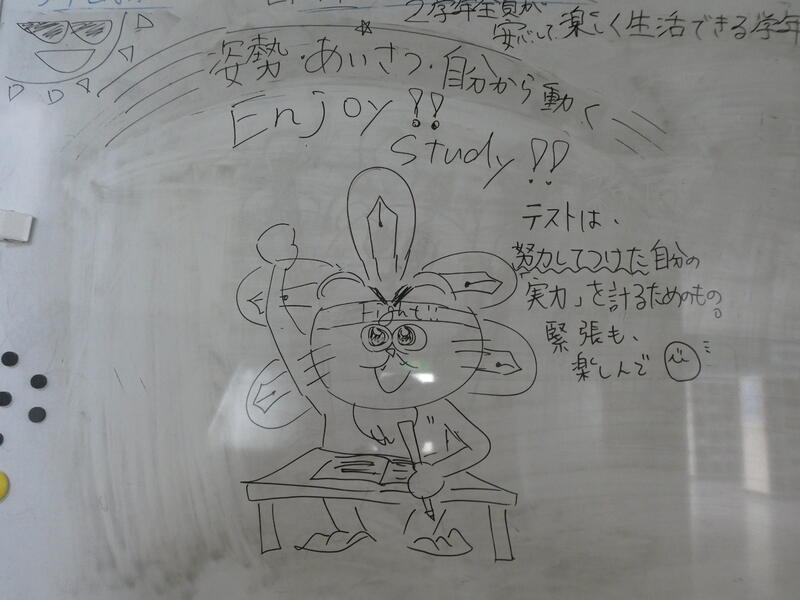 2学年全員が
安心して楽しく生活できる学年
姿勢・あいさつ・自分から動く
Enjoy!!
Study!!
テストは、
努力してつけた自分の
「実力」を計るためのもの。
緊張も、
楽しんで
Fight!!